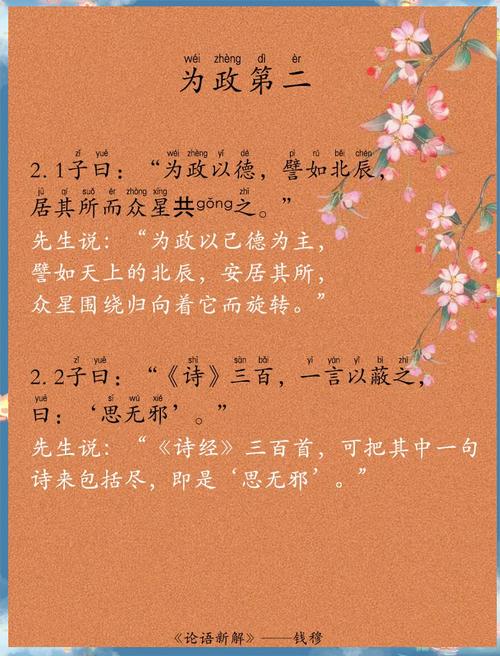 wéi zhèng dì èr
为政第二
zǐ yuē wéi zhèng yǐ dé pì rú běi chén
2.1子曰：“为政以德，譬如北辰，
jū qí suǒ ér zhòng xīng zhī
居其所而众星共gǒng之。”
先生说：“为政以己德为主，
譬如天上的北辰，安居其所，
众星围绕归向着它而旋转。”
zǐ yuē shī sān bǎi yì yán yǐ bì zhī
2.2子曰：“《诗》三百，一言以蔽之，
yuē sī wú xié
曰：‘思无邪’。”
先生说：“《诗经》三百首，可把其中一句
诗来包括尽，即是‘思无邪’。”
《论语新解》——钱穆